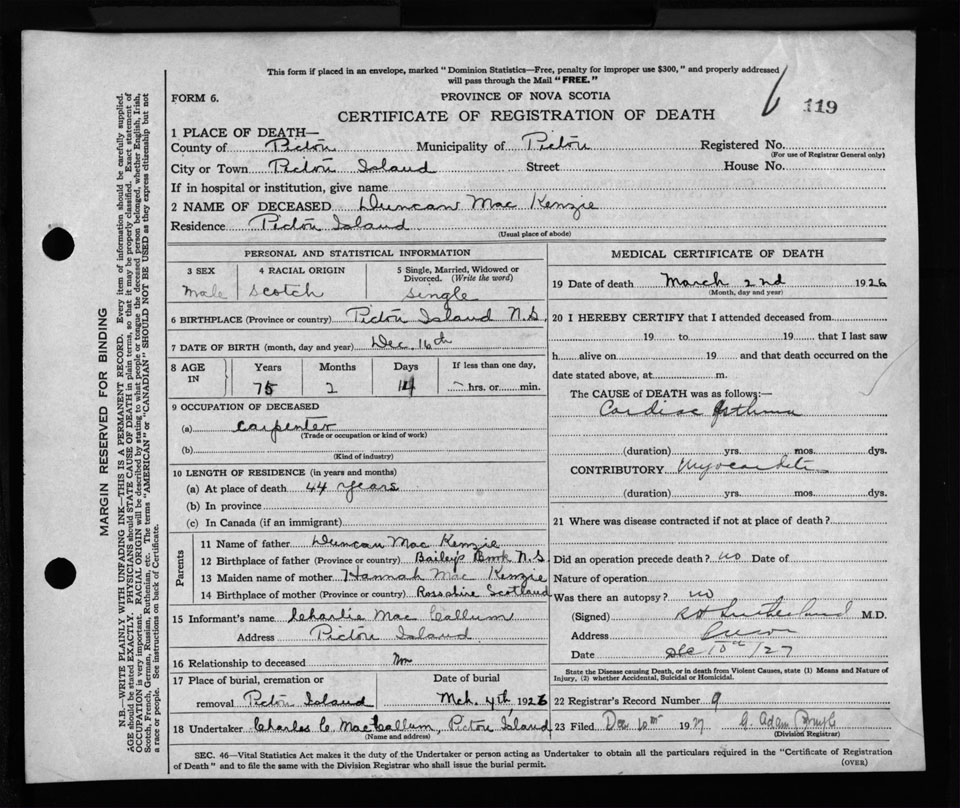 This form if placed in an envelope, marked "Dominion Statistics—Free, penalty for improper use $300," and properly addressed
will pass through the Mail "FREE."
FORM 6.
PROVINCE OF NOVA SCOTIA
119
CERTIFICATE OF REGISTRATION OF DEATH
1 PLACE OF DEATH—
County of Pictou Municipality of Pictou Registered No.
(For use of Registrar General only)
City or Town Pictou Island Street House No.
If in hospital or institution, give name
2 NAME OF DECEASED Duncan Mac Kenzie
Residence Pictou Island
(Usual place of abode)
PERSONAL AND STATISTICAL INFORMATION
3 SEX 4 RACIAL ORIGIN 5 Single, Married, Widowed or
Divorced. (Write the word)
Male Scotch Single
6 BIRTHPLACE (Province or country) Pictou Island N.S.
7 DATE OF BIRTH (month, day and year) Dec. 16th
8 AGE IN Years Months Days If less than one day,
75 2 14 hrs. or min.
9 OCCUPATION OF DECEASED
(a) Carpenter
(Trade or occupation or kind of work)
(b)
(Kind of industry)
10 LENGTH OF RESIDENCE (in years and months)
(a) At place of death 44 years
(b) In province
(c) In Canada (if an immigrant)
Parents
11 Name of father Duncan Mac Kenzie
12 Birthplace of father (Province or country) Bailey's Brook N.S.
13 Maiden name of mother Hannah Mac Kenzie
14 Birthplace of mother (Province or country) Rosshire Scotland
15 Informant's name Charlie Mac Callum
Address Pictou Island
16 Relationship to deceased
17 Place of burial, cremation or Date of burial
removal Pictou Island Mch. 4th 1926
18 Undertaker Charles C. MacCallum, Pictou Island
(Name and address)
MEDICAL CERTIFICATE OF DEATH
19 Date of death March 2nd 1926
(Month, day and year)
20 I HEREBY CERTIFY that I attended deceased from
19 to 19, that I last saw
h alive on 19 and that death occurred on the
date stated above, at m.
The CAUSE OF DEATH was as follows:—
Cardiac Asthma
(duration) yrs. mos. dys.
CONTRIBUTORY Myocarditis
(duration) yrs. mos. dys.
21 Where was disease contracted if not at place of death?
Did an operation precede death? no Date of
Nature of operation
Was there an autopsy? no
(Signed) Sutherland M.D.
Address
Date Dec 10th/27
State the Disease causing Death, or in death from Violent Causes, state (1) Means and Nature of
Injury, (2) whether Accidental, Suicidal or Homicidal.
22 Registrar's Record Number 9
23 Filed Dec 10th 1927 G. Adam
(Division Registrar)
SEC. 46—Vital Statistics Act makes it the duty of the Undertaker or person acting as Undertaker to obtain all the particulars required in the "Certificate of Registration
of Death" and to file the same with the Division Registrar who shall issue the burial permit.
(OVER)
MARGIN RESERVED FOR BINDING
N.B.—WRITE PLAINLY WITH UNFADING INK—THIS IS A PERMANENT RECORD. Every item of information should be carefully supplied.
AGE should be stated EXACTLY. PHYSICIANS should STATE CAUSE OF DEATH in plain terms, so that it may be properly classified. Exact statement of
OCCUPATION is very important. RACIAL ORIGIN will be described by stating to what people or tongue the deceased person belonged, whether English, Irish,
Scotch, French, German, Russian, Ruthenian, etc. The terms "AMERICAN" or "CANADIAN" SHOULD NOT BE USED as they express citizenship but not
a race or people. See instructions on back of Certificate.